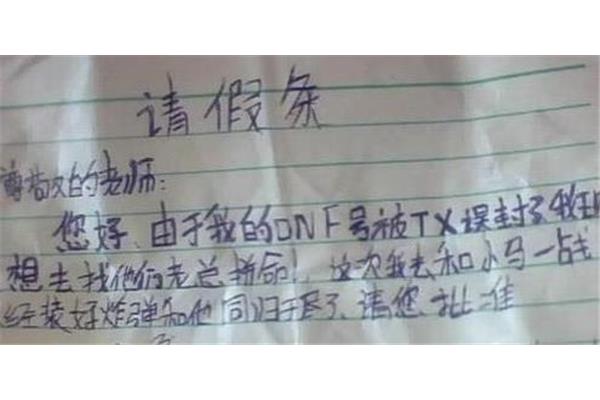 请假条
尊敬的老师:
您好,由于我的DNF号被TX误封了我现
想去找他们老总拼命!这次我去和小马一战
经装好炸弹和他同归于尽了,请您批准